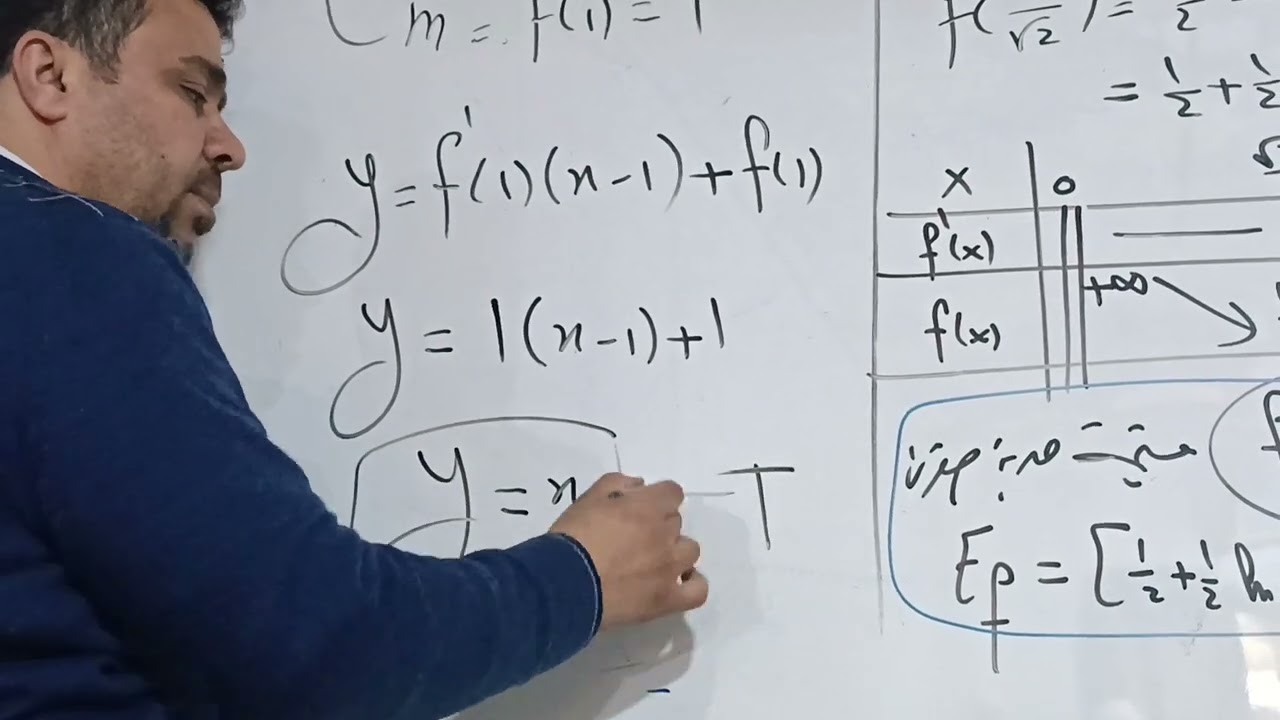 m = f(1) = 1
y = f'(1)(x-1) + f(1)
y = 1(x-1)+1
y = x
T
f(1/√2) = 1/2
= 1/2 + 1/2
x 0
f'(x) —
f(x) +∞
Ef = [1/2 + 1/2 ln